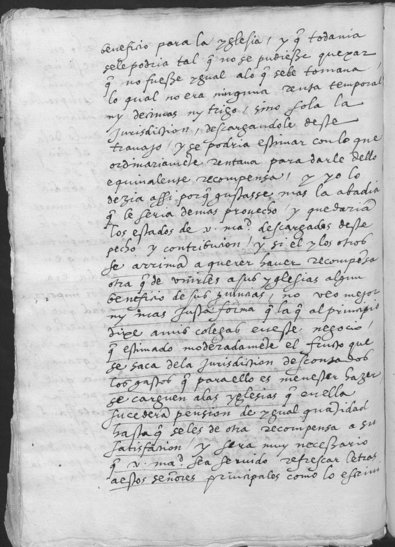 beneficio para la yglesia / y q̃ todauia
se le podria tal q̃ no se pudiesse quexar
q̃ no fuesse ygual a lo q̃ se le tomaua
lo qual no era ninguna renta temporal
ny decimas ny trigo / sino sola la
jurisdicion / descargandole deste
trauajo / y se podria estimar con lo que
ordinariamẽte rentaua para darle dello
equiualense recompensa / y yo lo
dezia assi porq̃ gustasse mas la abadia
q̃ le seria de mas prouecho / y quedariã
los estados de v. mag.d descargados deste
pecho y contribucion / y si el y los otros
se arrimã a querer hauer recompensa
otra q̃ de vnirles a sus yglesias algun
beneficio de sus , no veo mejor
ny mas justa forma q̃ la q̃ al principio
dixe a mis colegas en este negocio /
q̃ estimado moderadamẽte el fruto que
se saca de la jurisdicion descontados
los gastos q̃ para ello es menester hazer
se carguen a las yglesias q̃ en ella
sucedera pension de ygual quantidad
hasta q̃ se les de otra recompensa a su
satisfacion / y sera muy necessario
q̃ v. mag.d sea seruido refrescar letras
a estos señores principales como lo escriui